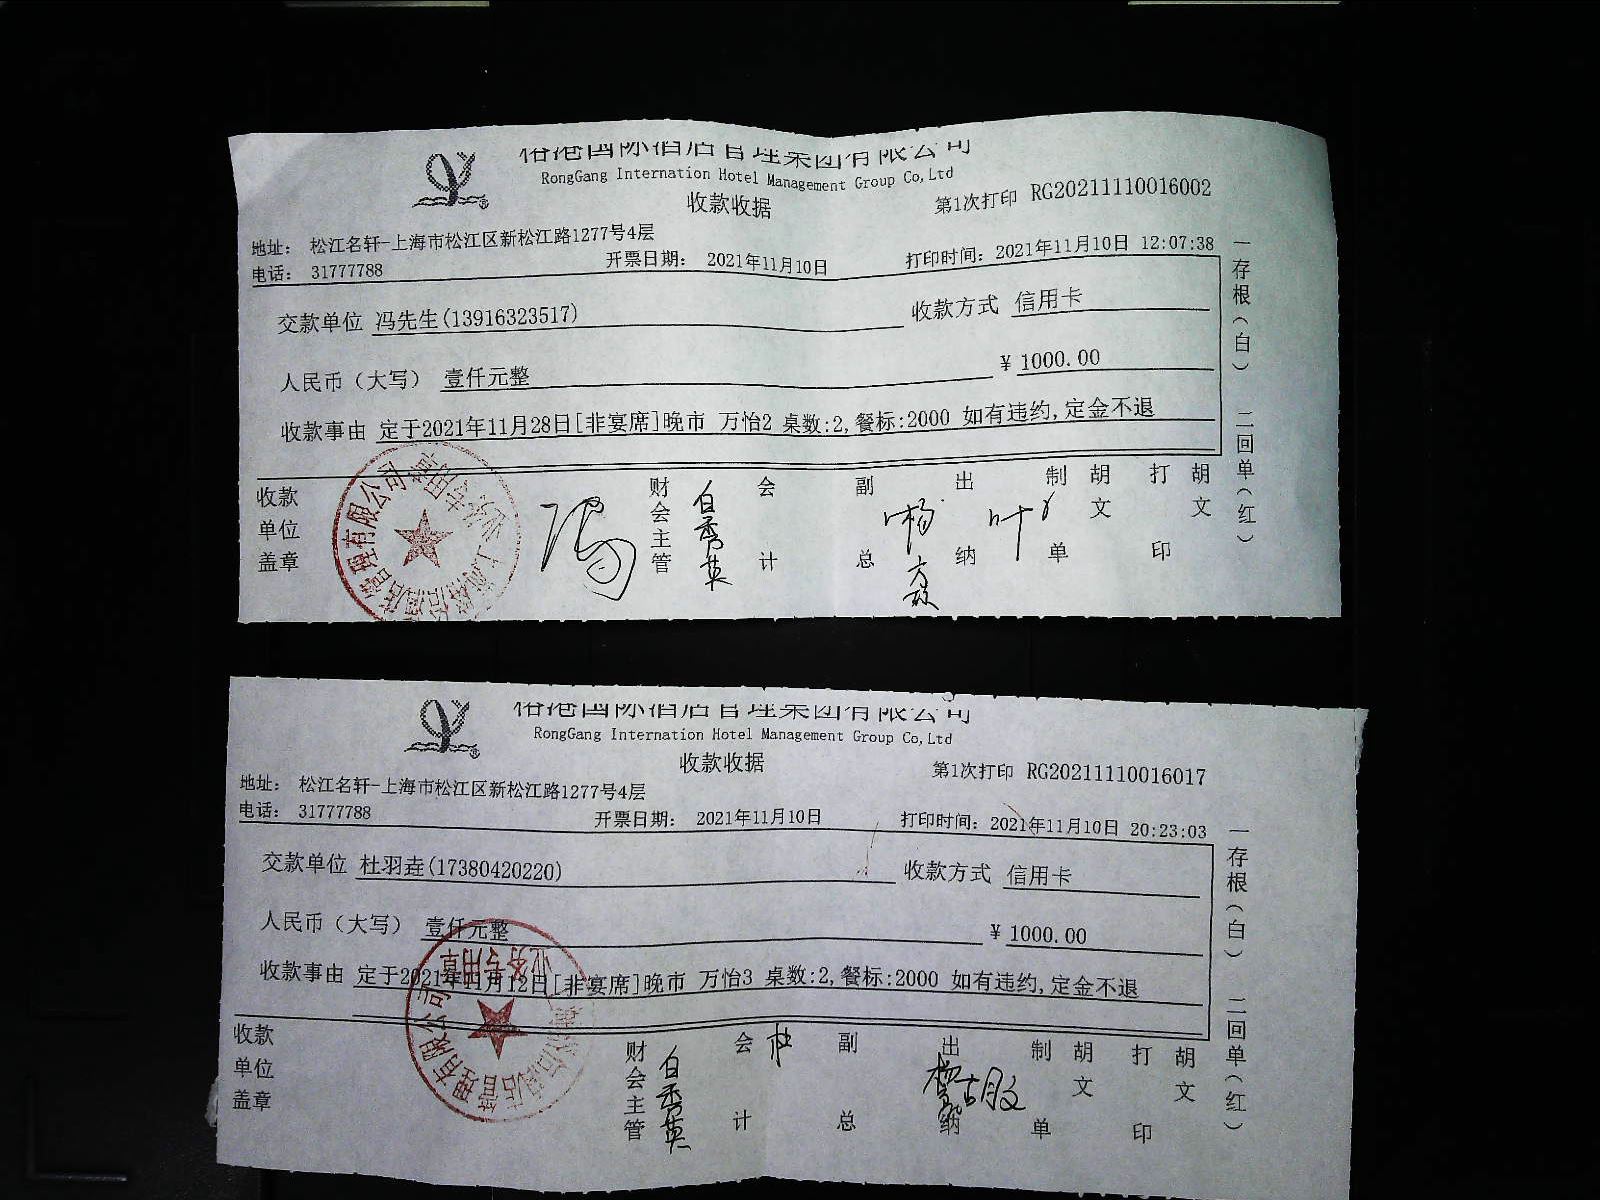 国际酒店管理集团有限公司
RongGang Internation Hotel Management Group Co,Ltd
收款收据
第1次打印 RG20211110016002
地址： 松江名轩-上海市松江区新松江路1277号4层
电话： 31777788
开票日期： 2021年11月10日
打印时间：2021年11月10日 12:07:38
交款单位 冯先生(13916323517)
收款方式 信用卡
人民币（大写） 壹仟元整
¥ 1000.00
收款事由 定于2021年11月28日[非宴席]晚市 万怡2 桌数:2,餐标:2000 如有违约,定金不退
收款单位盖章
财会主管 白秀英
会计
副总
出纳 叶
制单 胡文
打印 胡文
一存根（白） 二回单（红）
管理有限公司
业务专用章
国际酒店管理集团有限公司
RongGang Internation Hotel Management Group Co,Ltd
收款收据
第1次打印 RG20211110016017
地址： 松江名轩-上海市松江区新松江路1277号4层
电话： 31777788
开票日期： 2021年11月10日
打印时间：2021年11月10日 20:23:03
交款单位 杜羽垚(17380420220)
收款方式 信用卡
人民币（大写） 壹仟元整
¥ 1000.00
收款事由 定于2021年11月12日[非宴席]晚市 万怡3 桌数:2,餐标:2000 如有违约,定金不退
收款单位盖章
财会主管 白秀英
会计 杜
副总
出纳 胡文
制单 胡文
打印 胡文
一存根（白） 二回单（红）
管理有限公司
业务专用章